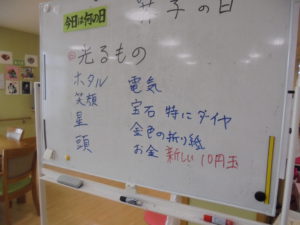 今日は何の日
子の日
光るもの
ホタル 電気
笑顔 宝石 特にダイヤ
星 金色の折り紙
頭 お金 新しい10円玉